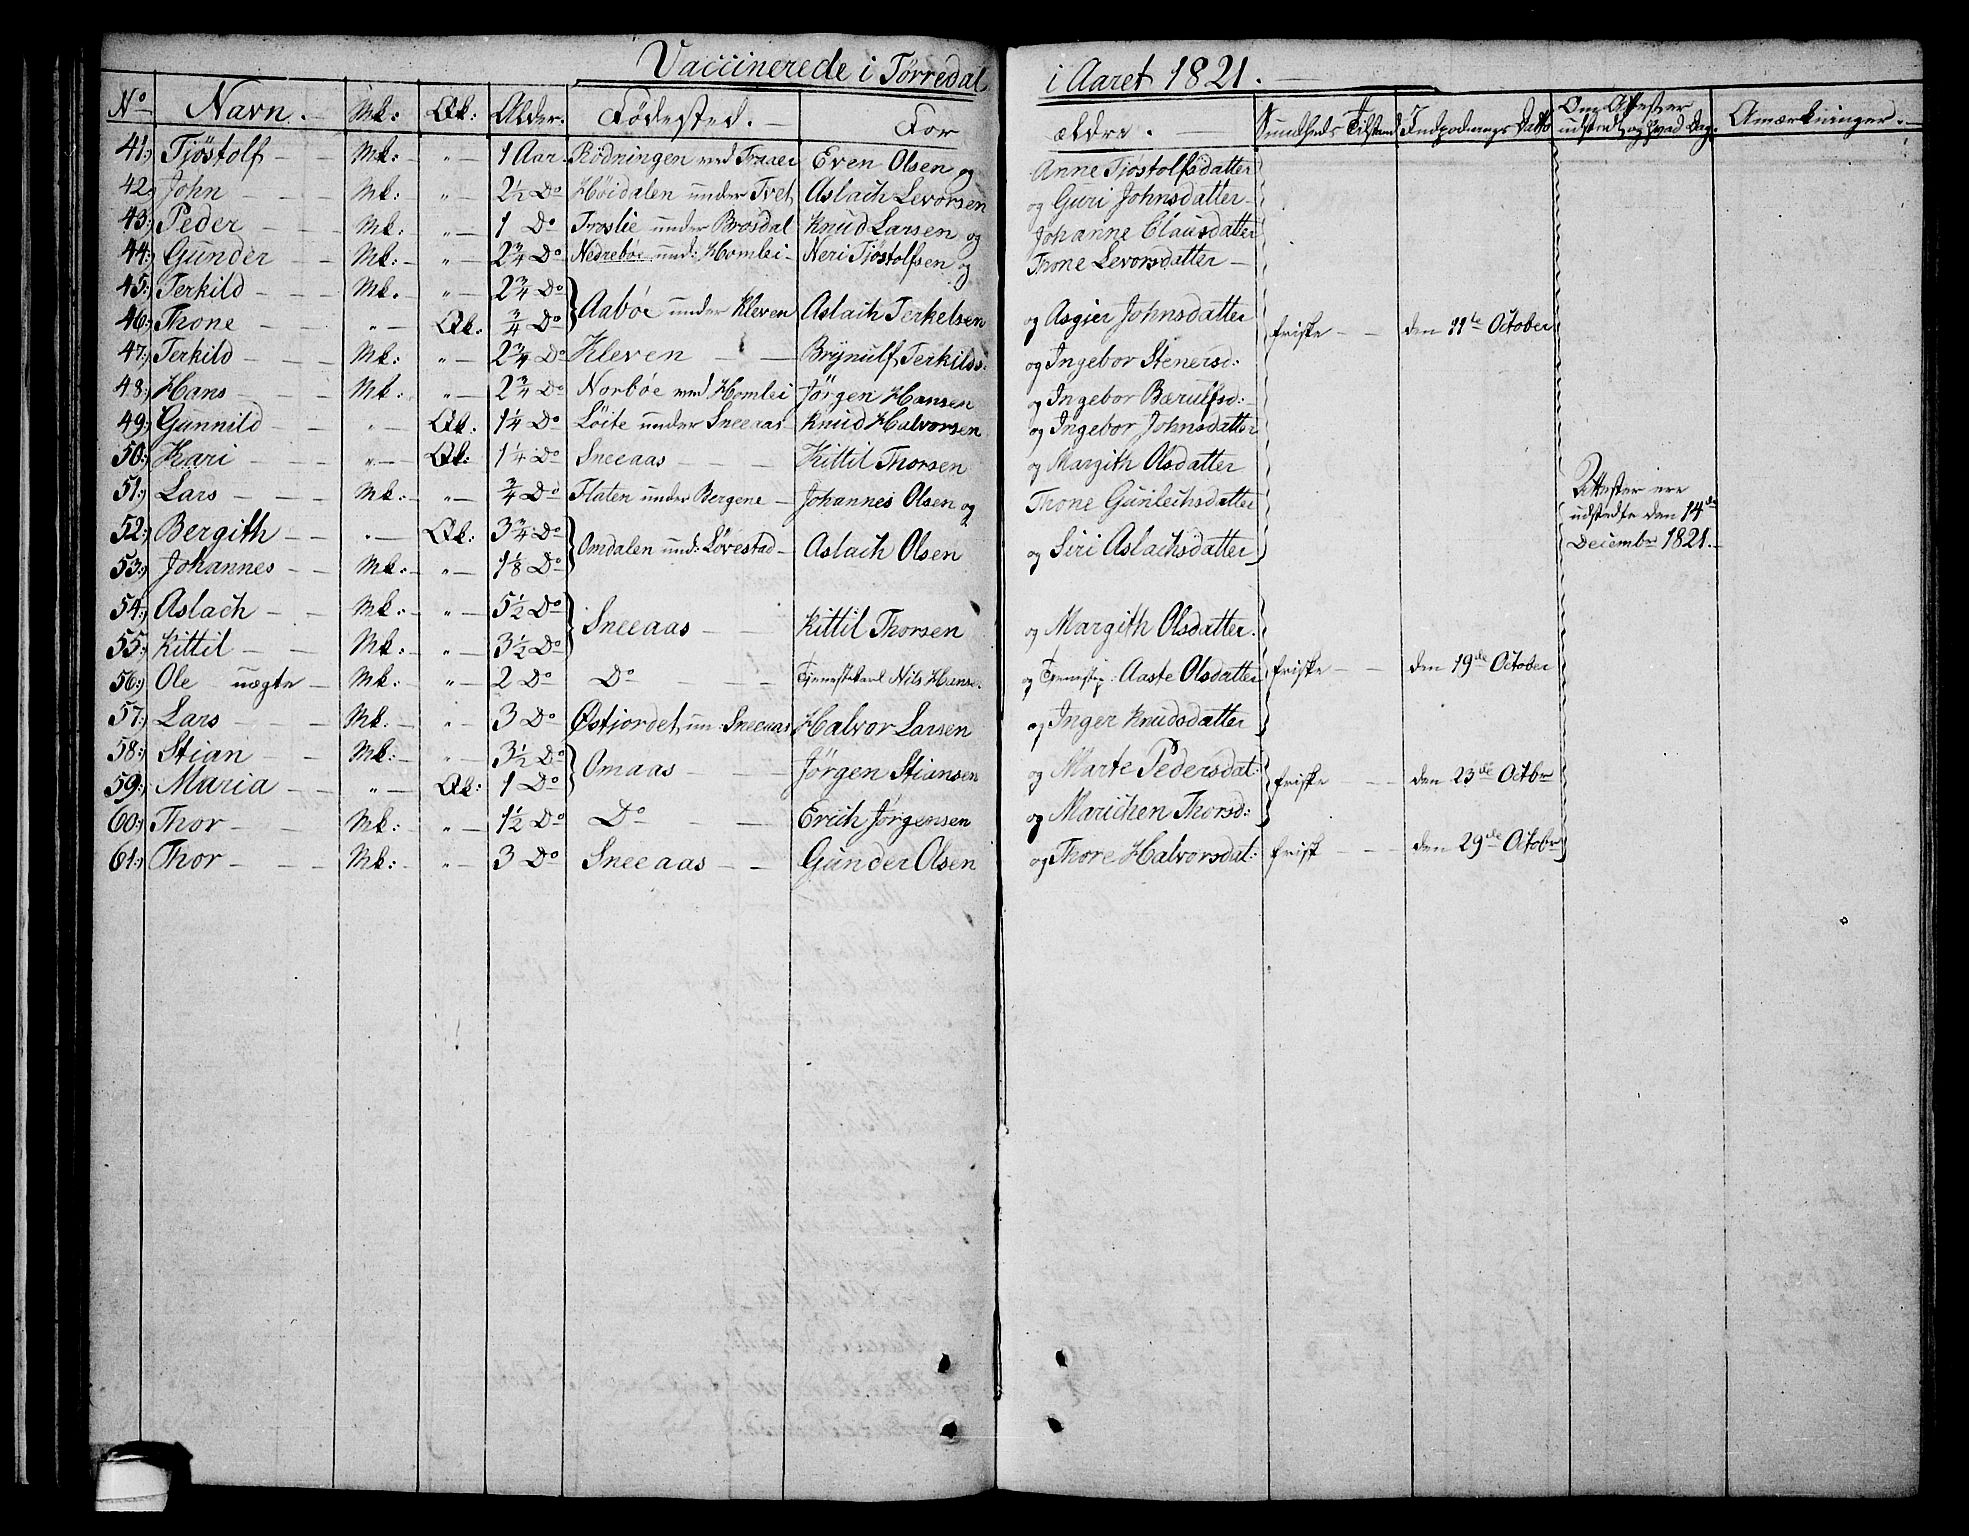 Vaccinerede i Tørredal i Aaret 1821.
No Navn. Mk: Qk: Alder. Fødested. For ældre. Sundheds Tilstand Indpodnings Datto Om Attester udstædt, og hvad Dag. Anmærkninger.
41:) Tjöstolf Mk: " 1 Aar Rödningen ved Traaer Even Olsen og Anne Tjöstolfsdatter
42:) John Mk: " 2½ Do Høidalen under Tvet Aslach Levorsen og Guri Johnsdatter
43:) Peder Mk: " 1 Do Troslie under Brosdal Knud Larsen og Johanne Clausdatter
44:) Gunder Mk: " 2¾ Do Nedrebøe und: Homlei Neri Tjöstolfsen og Thone Levorsdatter
45:) Terkild Mk. " 2¾ Do
46:) Thone " Qk: ¾ Do Aabøe under Kleven Aslach Terkelsen og Asgier Johnsdatter friske den 11te October
47:) Terkild Mk: " 2¾ Do Kleven Brynulf Terkilds: og Ingebor Stenersd:
48:) Hans Mk: " 2¾ Do Norbøe ved Homlei Jörgen Hansen og Ingebor Bærulfsd:
49:) Gunnild " Qk: 1¼ Do Löite under Sneeaas Knud Halvorsen og Ingebor Johnsdatter
50:) Kari " Qk: 1¼ Do Sneeaas Kittil Thorsen og Margith Olsdatter
51:) Lars Mk: " ¾ Do Flaten under Bergene Johannes Olsen og Thone Gunlechsdatter Attester ere
52:) Bergith " Qk: 3¾ Do udstædte den 14de
Omdalen und: Løvestad Aslach Olsen og Siri Aslachsdatter Decembr 1821.
53:) Johannes Mk: " 1⅛ Do
54:) Aslach Mk: " 5½ Do
Sneeaas Kittil Thorsen og Margith Olsdatter.
55:) Kittil Mk: " 3½ Do
56:) Ole uægte Mk: " 2 Do Do Tienestekarl Nils Hans: og Tienistep: Aaste Olsdatter friske den 19de October
57:) Lars Mk. " 3 Do Østjordet un: Sneeaas Halvor Larsen og Inger Knudsdatter
58:) Stian Mk: " 3½ Do
Omaas Jörgen Stiansen og Marte Pedersdat: friske den 23de Octbr
59:) Maria " Qk: 1 Do
60:) Thor Mk: " 1½ Do Do Erich Jørgensen og Marichen Thorsd:
61:) Thor Mk: " 3 Do Sneeaas Gunder Olsen og Thore Halvorsdat: frisk den 29de Octobr